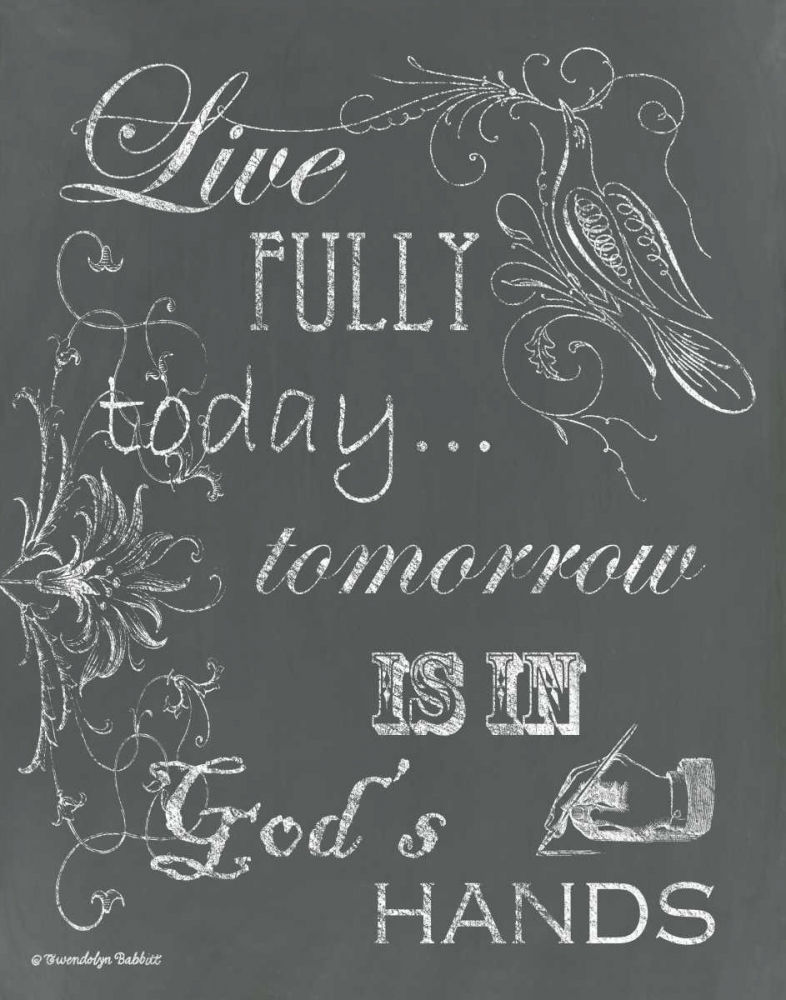 Live
FULLY
today...
tomorrow
IS IN
God's
HANDS
© Gwendolyn Babbitt